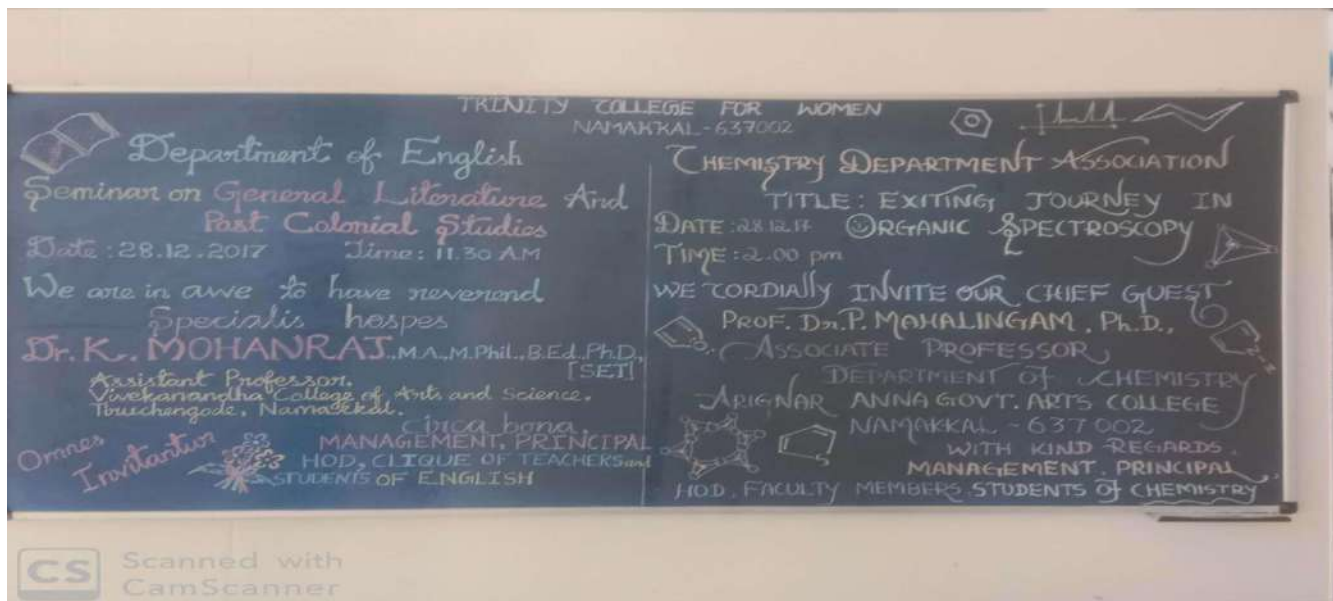 TRINITY COLLEGE FOR WOMEN
NAMAKKAL - 637002
Department of English
Seminar on General Literature And
Post Colonial Studies
Date : 28.12.2017 Time : 11.30 A.M
We are in awe to have reverend
Specialis hospes
Dr. K. MOHANRAJ, M.A., M.Phil., B.Ed., Ph.D.,
[SET]
Assistant Professor.
Vivekanandha College of Arts and Science.
Tiruchengode, Namakkal.
circa bona,
Omnes
Invitantur
MANAGEMENT, PRINCIPAL
HOD, CLIQUE OF TEACHERS and
STUDENTS OF ENGLISH
CHEMISTRY DEPARTMENT ASSOCIATION
TITLE : EXITING JOURNEY IN
ORGANIC SPECTROSCOPY
DATE : 28.12.17
TIME : 2.00 pm
WE CORDIALLY INVITE OUR CHIEF GUEST
PROF. Dr. P. MAHALINGAM, Ph.D.,
ASSOCIATE PROFESSOR
DEPARTMENT OF CHEMISTRY
ARIGNAR ANNA GOVT. ARTS COLLEGE
NAMAKKAL - 637 002
WITH KIND REGARDS,
MANAGEMENT, PRINCIPAL,
HOD, FACULTY MEMBERS, STUDENTS OF CHEMISTRY
CS Scanned with
CamScanner